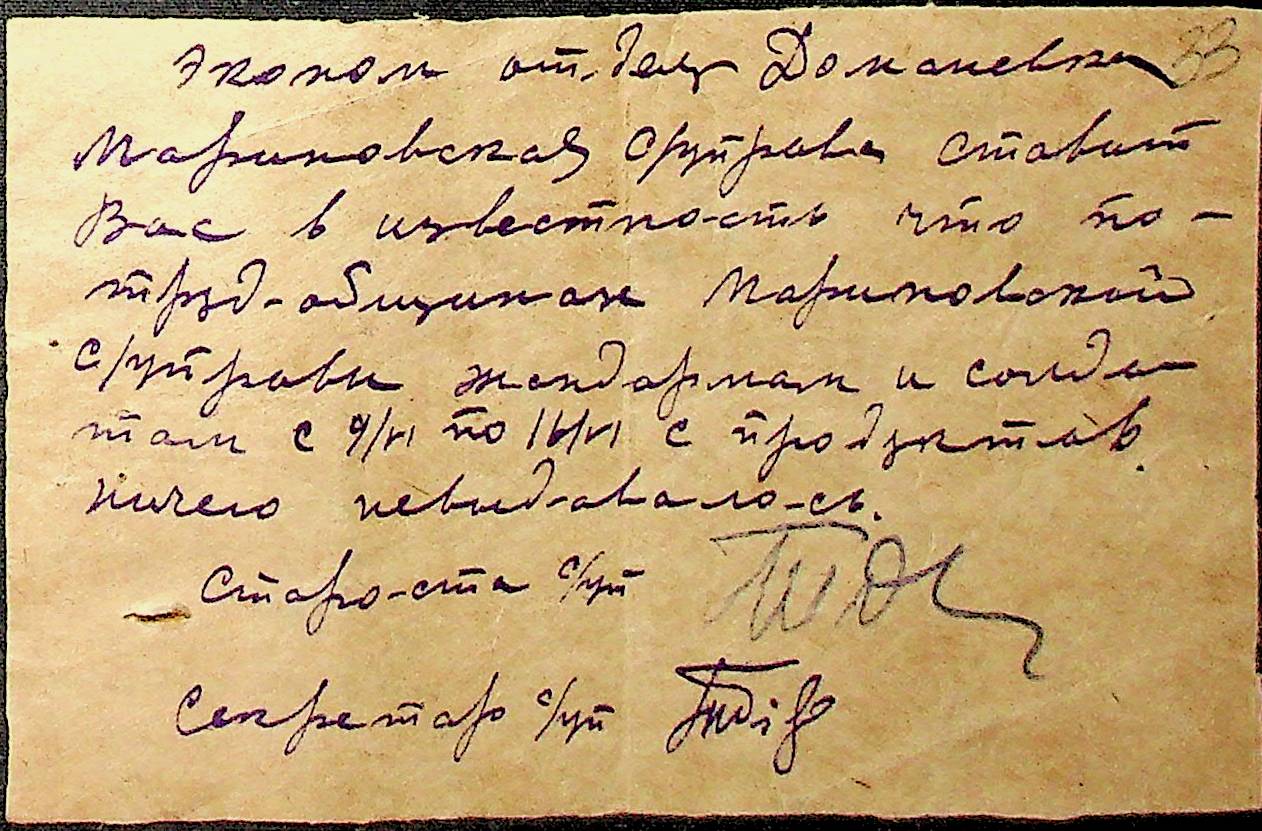 33
Эконом отделу Доманевка
Мариновская с/управа ставит
Вас в известность что по-
труд-общинах Мариновской
с/управы жандармам и солда-
там с 9/VI по 16/VI с продуктов
ничего невыдавалось.
Староста с/уп
Секретар с/уп